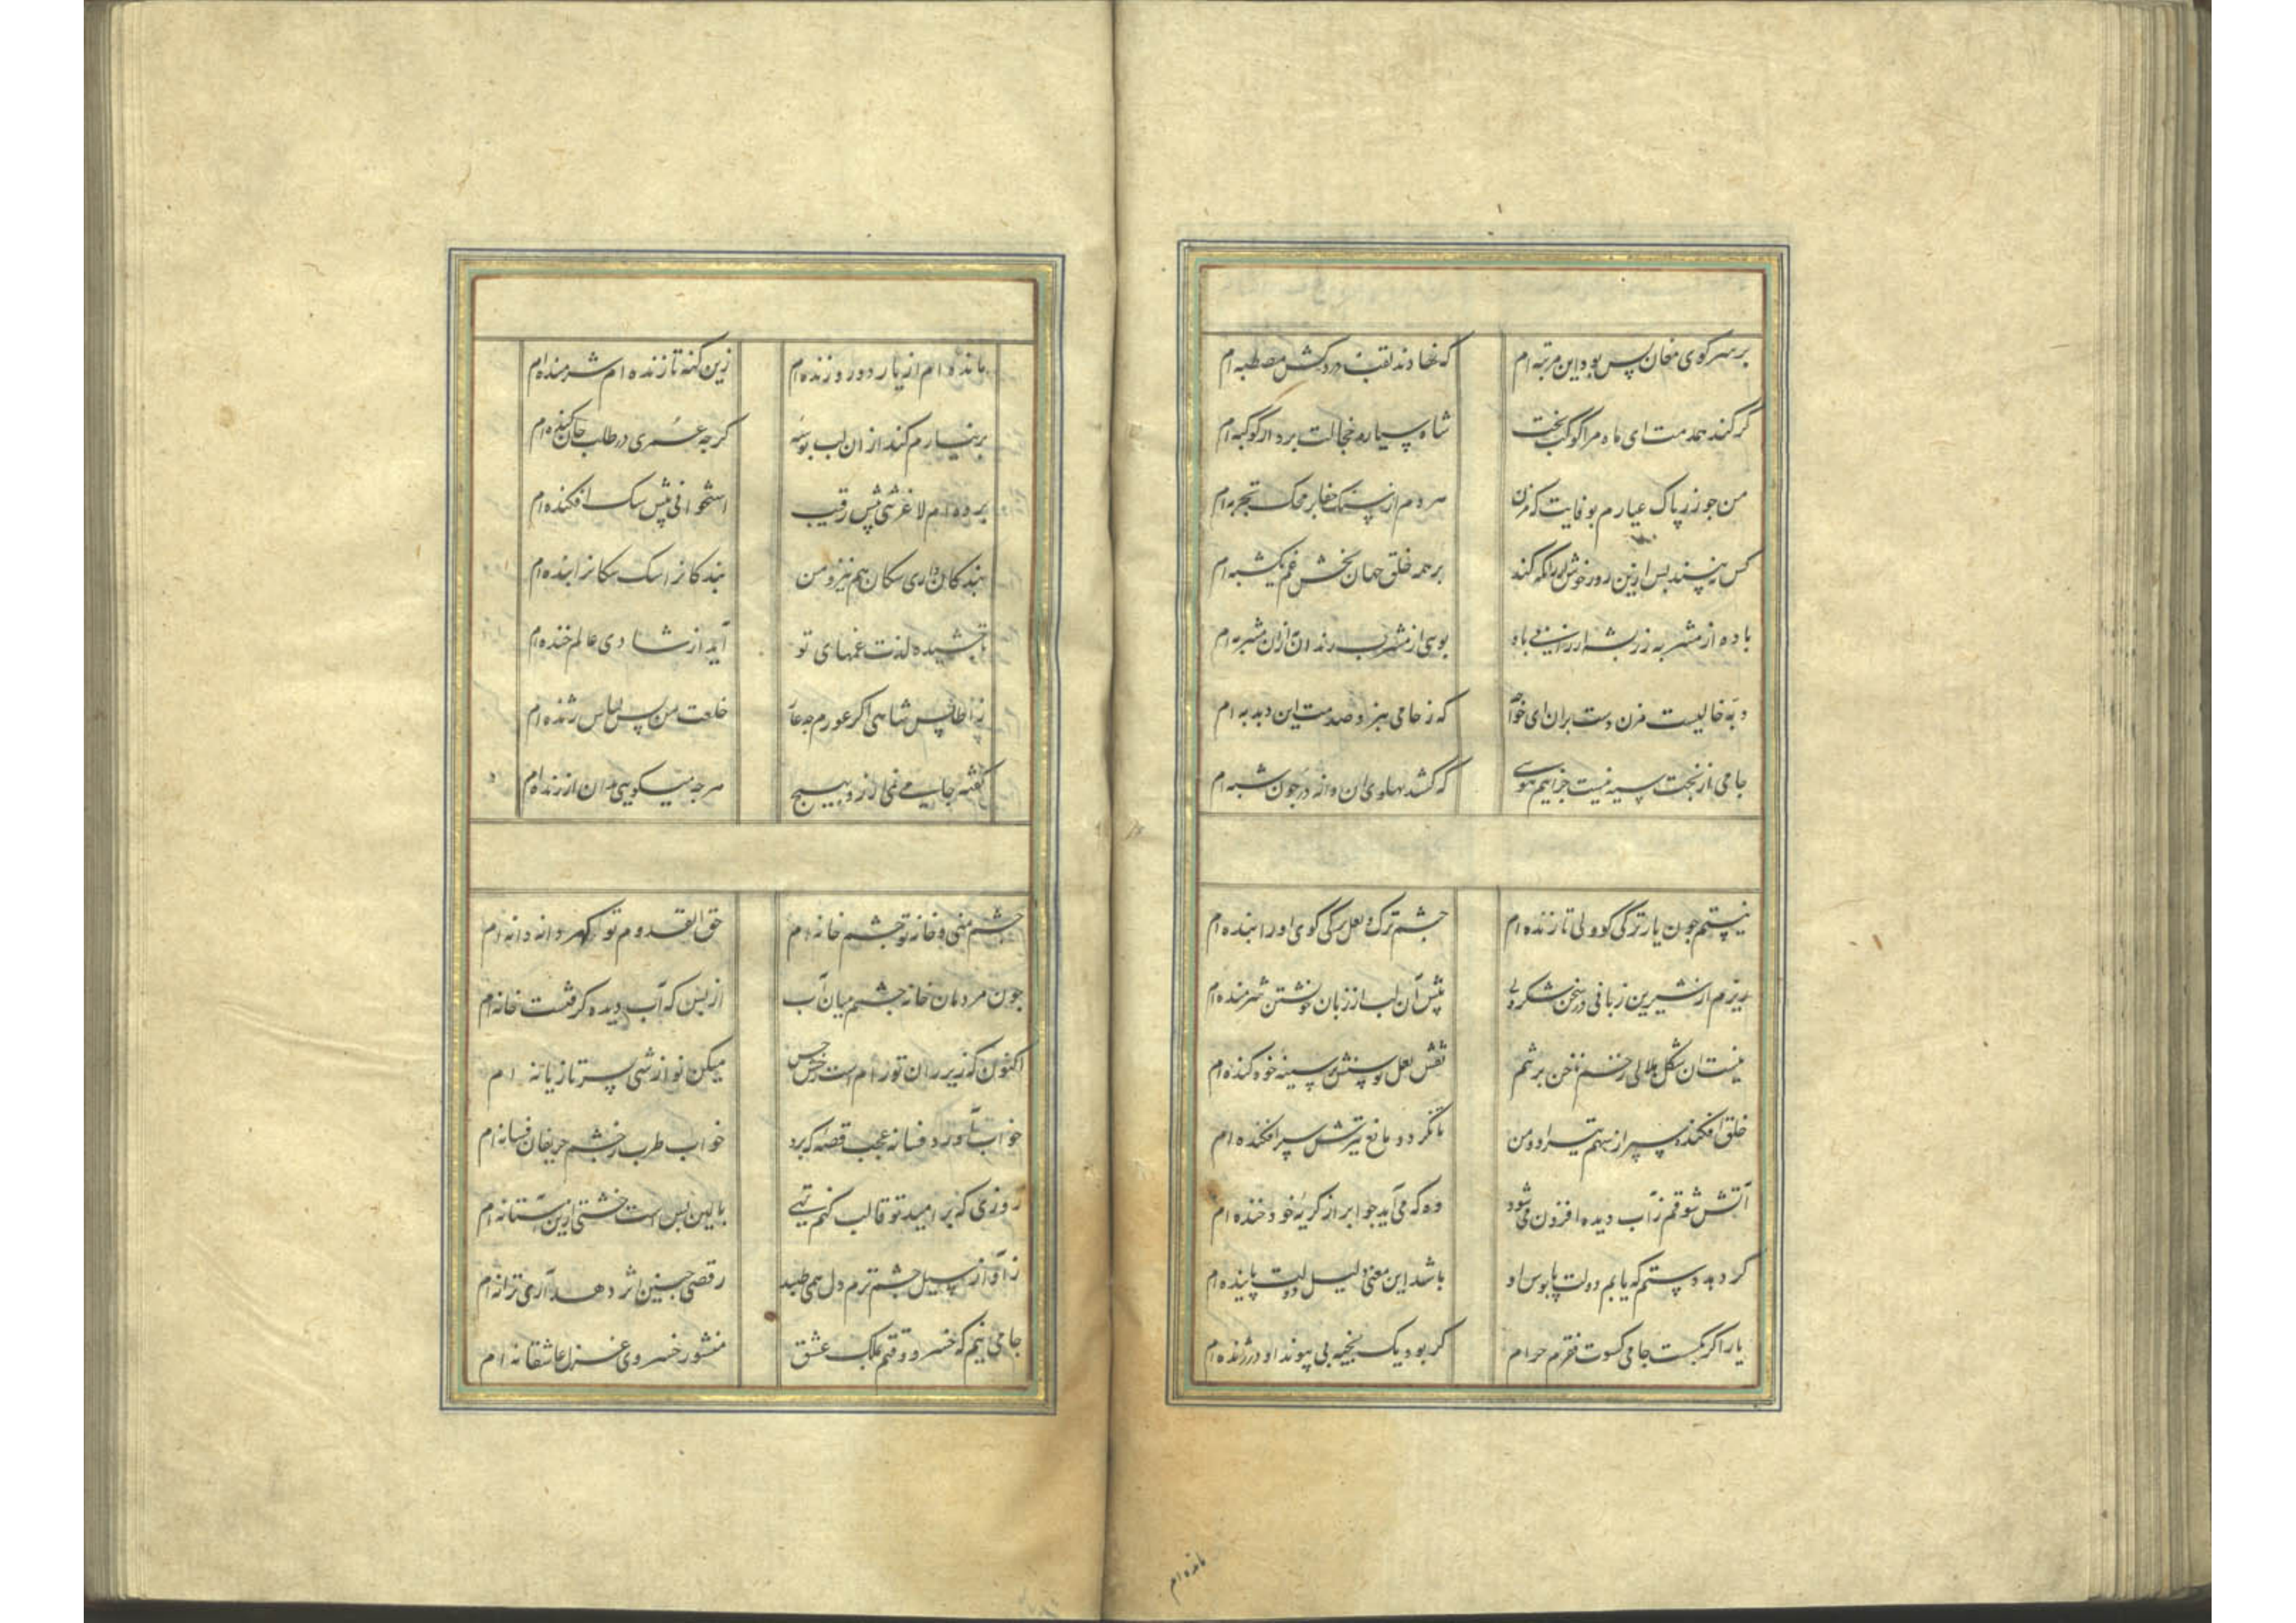 بر سر کوی مغان بس بود این مرتبه ام که نهادند لقب دردکش مصطبه ام
گر کند همدمت ای ماه مرا کوکب بخت شاه سیاره خجالت برد از کوکبه ام
من جو زر پاک عیارم بوفایت که مزن هر دم از سنک جفا بر محک تجربه ام
کس نه بسند بس ازین روز خوش ار زانکه کند بر همه خلق جهان بخش غم یکشبه ام
باده از مشربه زر بشه ارزانی باد بوسی از مشرب رندان ازان مشربه ام
دبه خالیست مزن دست بران ای خواجه که ز جامی هنر و صدمت این دبدبه ام
جامی از بخت سیه نیست جز اینم هوسی که کشد بهلوی ان دانه در جون شبه ام
نیستم جون یار ترکی گو ولی تا زنده ام جشم ترک و لعل ترکی گوی او را بنده ام
ریزم از شیرین زبانی در سخن شکر ولی بیش آن لب از زبان خویشتن شرمنده ام
نیست ان شکل هلالی زخم ناخن بر تنم نقش لعل توسنش بر سینه خود کنده ام
خلق افکنده سبر از سهم تیر او و من تا نکردد مانع تیرش سبر افکنده ام
آتش شوقم ز آب دیده افزون می شود وه که می آید جو ابر از کریه خود خنده ام
کر دهد دستم که یابم دولت پابوس او باشد این معنی دلیل دولت پاینده ام
یار اکر بکسست جامی کسوت فقرم حرام کر بود یک بخیه بی پیوند او در ژنده ام
مانده ام
مانده ام از یار دور و زنده ام زین کنه تا زنده ام شرمنده ام
بر نیارم کند از ان لب بوسه کرجه عمری در طلب جان کنده ام
برده ام لاغر تنی پیش رقیب استخوانی پیش سک افکنده ام
بندکان داری سکان هم نیز و من بندکانرا سک سکانرا بنده ام
تا جشیده لذت غمهای تو آید از شادی عالم خنده ام
ز اطلس شاهی اکر عورم جه عار خلعت من بس لباس ژنده ام
کفته جامی نمی ارزد بهیج هرجه میکویی بدان ارزنده ام
جشم منی و خانه تو جشم خانه ام حق القدوم تو کهر دانه دانه ام
جون مردمان خانه جشم میان آب از بس که آب دیده کرفتست خانه ام
اکنون که زیر ران تو رام است رخش حسن میکن نوازشی بسر تازیانه ام
خواب آورد فسانه عجب قصه که برد خواب طرب ز جشم حریفان فسانه ام
روزی که بر امید تو قالب کنم تهی بالین بس است خشتی ازین آستانه ام
ز آواز سیل جشم ترم دل همی طبد رقصی جنین اثر دهد آری ترانه ام
جامی منم که خسرو وقتم بملک عشق منشور خسروی غزل عاشقانه ام